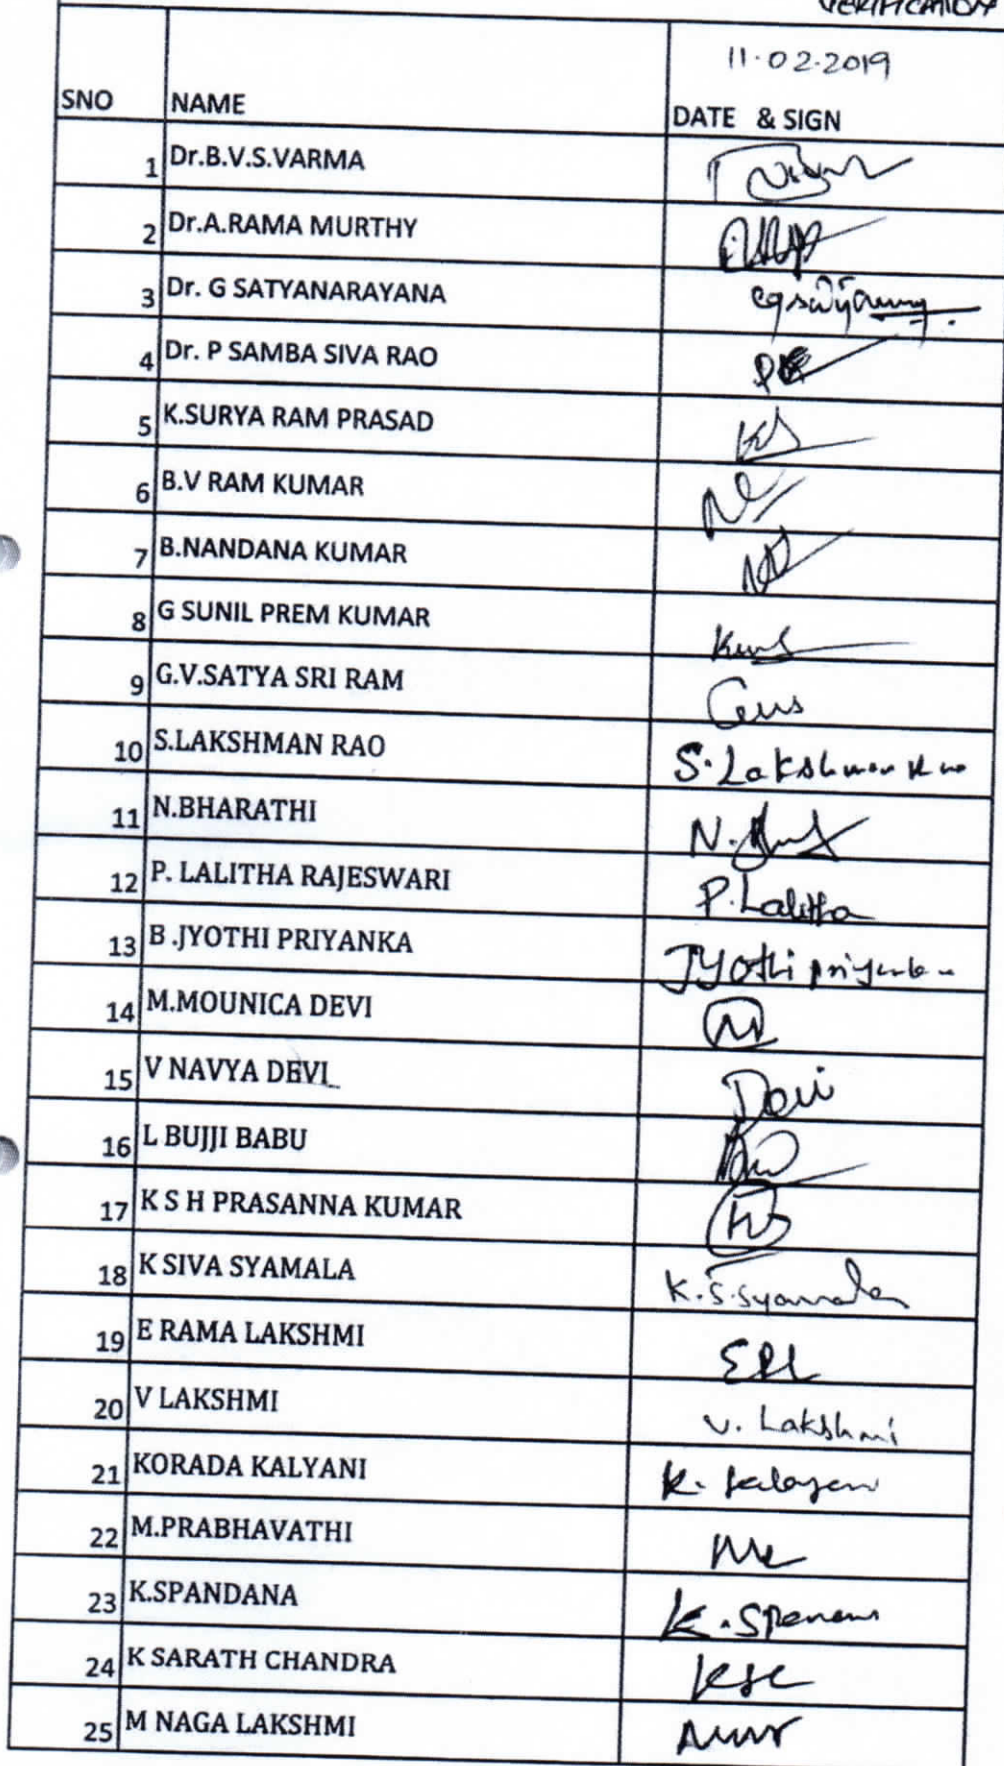 VERIFICATION
11-02-2019
SNO NAME DATE & SIGN
1 Dr.B.V.S.VARMA
2 Dr.A.RAMA MURTHY
3 Dr. G SATYANARAYANA
4 Dr. P SAMBA SIVA RAO
5 K.SURYA RAM PRASAD KS
6 B.V RAM KUMAR
7 B.NANDANA KUMAR
8 G SUNIL PREM KUMAR
9 G.V.SATYA SRI RAM
10 S.LAKSHMAN RAO S. Lakshman Rao
11 N.BHARATHI N.
12 P. LALITHA RAJESWARI P. Lalitha
13 B .JYOTHI PRIYANKA Jyothi priyanka
14 M.MOUNICA DEVI M
15 V NAVYA DEVI Devi
16 L BUJJI BABU
17 K S H PRASANNA KUMAR
18 K SIVA SYAMALA K.S.Syamala
19 E RAMA LAKSHMI ERL
20 V LAKSHMI V. Lakshmi
21 KORADA KALYANI K. Kalayani
22 M.PRABHAVATHI
23 K.SPANDANA
24 K SARATH CHANDRA KSC
25 M NAGA LAKSHMI